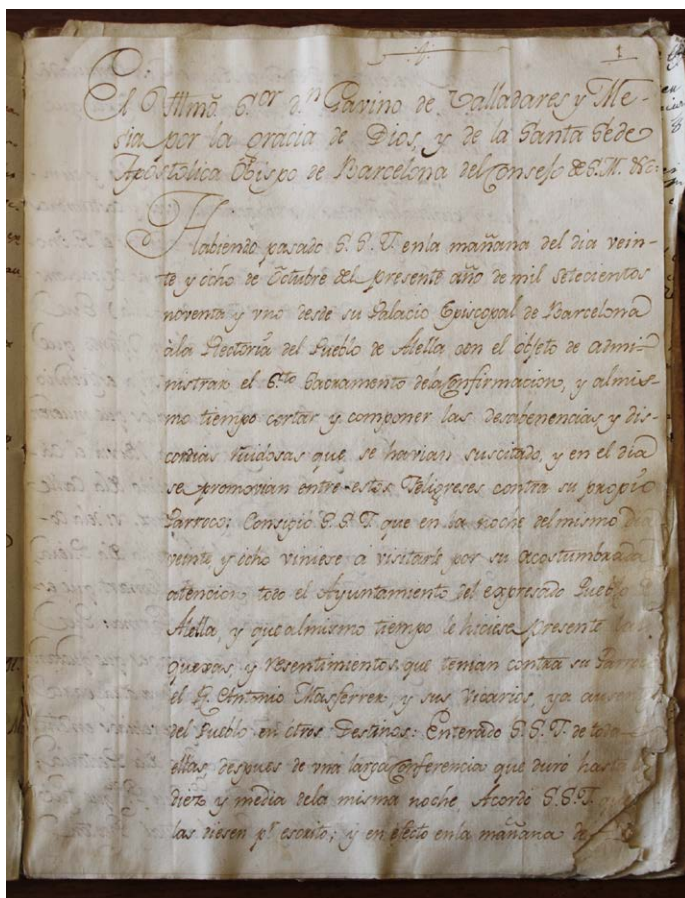 1
El Illmõ. Sor. dn. Gavino de Valladares y Me-
sia por la gracia de Dios, y de la Santa Sede
Apostolica Obispo de Barcelona del Consejo de S.M. &c:
Habiendo pasado S. S. I. en la mañana del dia vein-
te y ocho de Octubre del presente año de mil setecientos
noventa y vno desde su Palacio Episcopal de Barcelona
àla Rectoria del Pueblo de Alella con el objeto de admi-
nistrar el Sto. Sacramento dela Confirmacion, y al mis-
mo tiempo cortar y componer las desabenencias y dis-
cordias ruidosas que se havian suscitado, y en el dia
se promovian entre estos Feligreses contra su propio
Parroco; Consigió S. S. I. que en la noche del mismo dia
veinte y ocho viniese à visitarle por su acostumbrada
atencion todo el Ayuntamiento del expresado Pueblo
Alella, y que al mismo tiempo le hiciese presente
quexas, y resentimientos que tenian contra su
el R. Antonio Masferrer, y sus Vicarios, ya
del Pueblo en otros Destinos: Enterado S. S. I. de
ellas, despues de vna larga Conferencia que duró hasta
diez y media dela misma noche, Acordó S.S.I.
las diesen pr. escrito; y en efecto en la mañana de